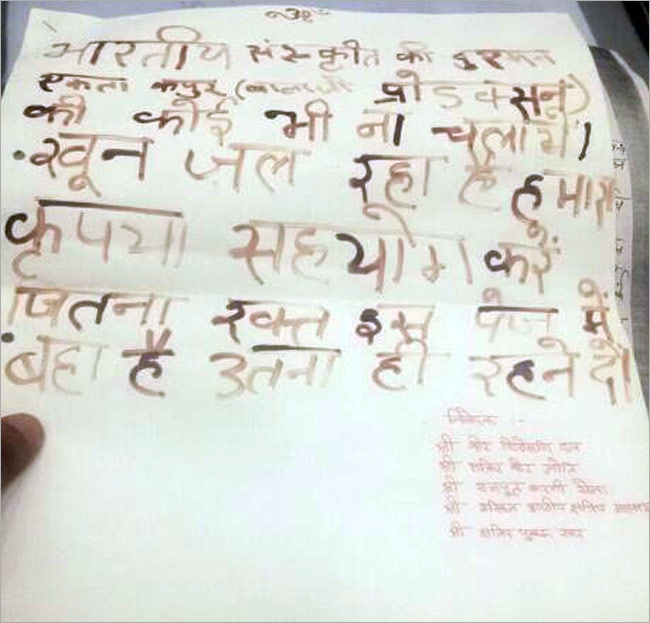 भारतीय संस्कृति की दुश्मन
एकता कपूर (बालाजी प्रोडक्सन)
की कोई भी ना चलाये।
खून जल रहा है हमारा
कृपया सहयोग करें
जितना रक्त इस पेज में
बहा है उतना ही रहने दो
निवेदक :-
श्री वीर शिरोमणि दल
श्री क्षत्रिय वीर ज्योति
श्री राजपूत करणी सेना
श्री क्षत्रिय युवक संघ